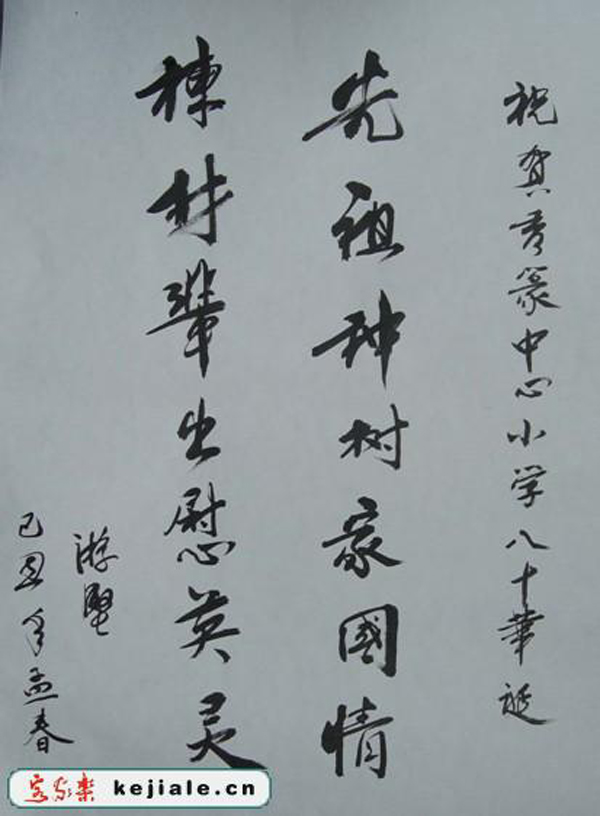 祝贺秀篆中心小学八十華诞
先祖种树家國情
棟材輩出慰英灵
游堅
己丑年孟春
客家樂 kejiale.cn